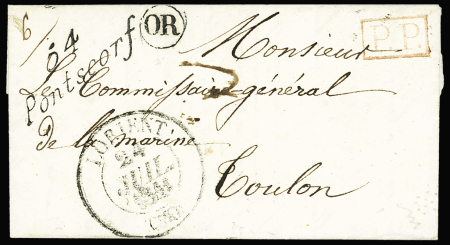 6/
64
Pontscorf
OR
P.P.
Monsieur
Le Commissaire général
de la marine
Toulon
LORIENT
24
JUIL.
(54)